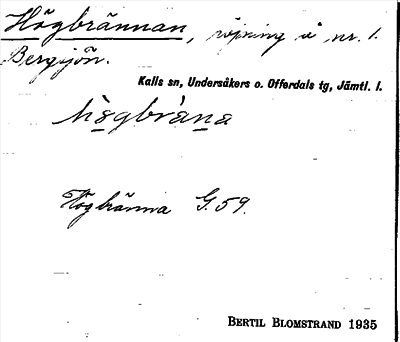 Högbrännan, röjning å nr. 1.
Bergsjön.
Kalls sn, Undersåkers o. Offerdals tg, Jämtl. l.
hǜgbrä̀na
Högbränna G. 59.
BERTIL BLOMSTRAND 1935